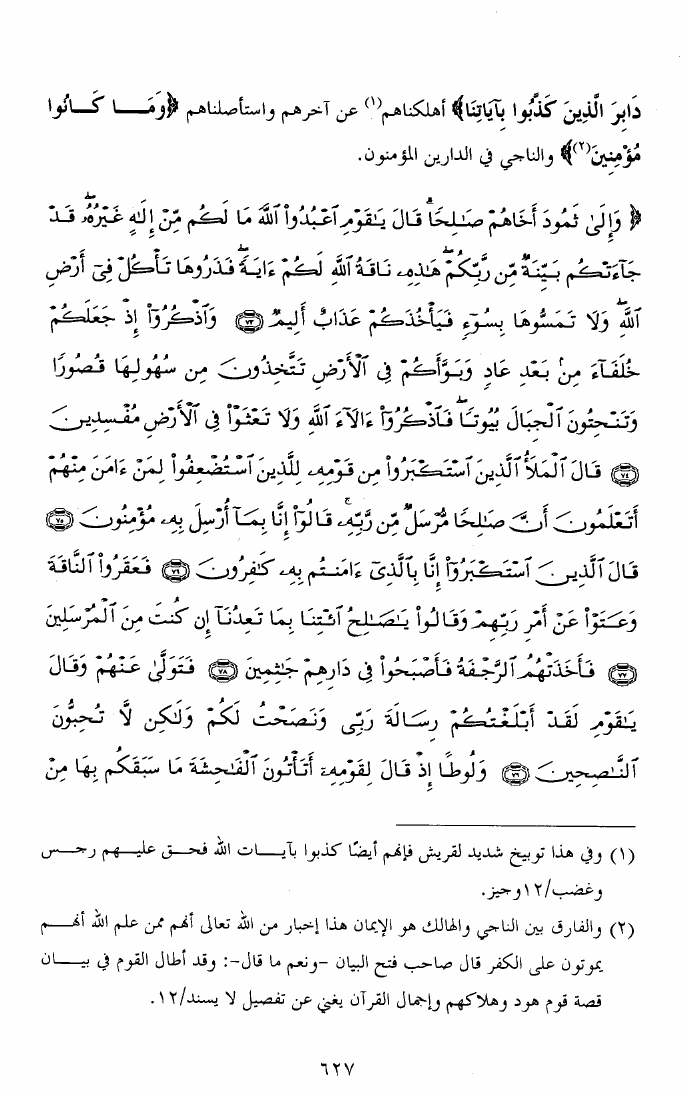 دَابِرَ الَّذِينَ كَذَّبُوا بِآيَاتِنَا﴾ أهلكناهم(١) عن آخرهم واستأصلناهم ﴿وَمَـــا كَـــانُوا
مُؤْمِنِينَ(٢)﴾ والناجي في الدارين المؤمنون.
﴿ وَإِلَىٰ ثَمُودَ أَخَاهُمْ صَـٰلِحًا ۗ قَالَ يَـٰقَوْمِ ٱعْبُدُوا۟ ٱللَّهَ مَا لَكُم مِّنْ إِلَـٰهٍ غَيْرُهُۥ ۖ قَدْ
جَآءَتْكُم بَيِّنَةٌ مِّن رَّبِّكُمْ ۖ هَـٰذِهِۦ نَاقَةُ ٱللَّهِ لَكُمْ ءَايَةً ۖ فَذَرُوهَا تَأْكُلْ فِىٓ أَرْضِ
ٱللَّهِ ۖ وَلَا تَمَسُّوهَا بِسُوٓءٍ فَيَأْخُذَكُمْ عَذَابٌ أَلِيمٌ ﴿٧٣﴾ وَٱذْكُرُوٓا۟ إِذْ جَعَلَكُمْ
خُلَفَآءَ مِنۢ بَعْدِ عَادٍ وَبَوَّأَكُمْ فِى ٱلْأَرْضِ تَتَّخِذُونَ مِن سُهُولِهَا قُصُورًا
وَتَنْحِتُونَ ٱلْجِبَالَ بُيُوتًا ۖ فَٱذْكُرُوٓا۟ ءَالَآءَ ٱللَّهِ وَلَا تَعْثَوْا۟ فِى ٱلْأَرْضِ مُفْسِدِينَ
﴿٧٤﴾ قَالَ ٱلْمَلَأُ ٱلَّذِينَ ٱسْتَكْبَرُوا۟ مِن قَوْمِهِۦ لِلَّذِينَ ٱسْتُضْعِفُوا۟ لِمَنْ ءَامَنَ مِنْهُمْ
أَتَعْلَمُونَ أَنَّ صَـٰلِحًا مُّرْسَلٌ مِّن رَّبِّهِۦ ۚ قَالُوٓا۟ إِنَّا بِمَآ أُرْسِلَ بِهِۦ مُؤْمِنُونَ ﴿٧٥﴾
قَالَ ٱلَّذِينَ ٱسْتَكْبَرُوٓا۟ إِنَّا بِٱلَّذِىٓ ءَامَنتُم بِهِۦ كَـٰفِرُونَ ﴿٧٦﴾ فَعَقَرُوا۟ ٱلنَّاقَةَ
وَعَتَوْا۟ عَنْ أَمْرِ رَبِّهِمْ وَقَالُوا۟ يَـٰصَـٰلِحُ ٱئْتِنَا بِمَا تَعِدُنَآ إِن كُنتَ مِنَ ٱلْمُرْسَلِينَ
﴿٧٧﴾ فَأَخَذَتْهُمُ ٱلرَّجْفَةُ فَأَصْبَحُوا۟ فِى دَارِهِمْ جَـٰثِمِينَ ﴿٧٨﴾ فَتَوَلَّىٰ عَنْهُمْ وَقَالَ
يَـٰقَوْمِ لَقَدْ أَبْلَغْتُكُمْ رِسَالَةَ رَبِّى وَنَصَحْتُ لَكُمْ وَلَـٰكِن لَّا تُحِبُّونَ
ٱلنَّـٰصِحِينَ ﴿٧٩﴾ وَلُوطًا إِذْ قَالَ لِقَوْمِهِۦٓ أَتَأْتُونَ ٱلْفَـٰحِشَةَ مَا سَبَقَكُم بِهَا مِنْ
(١) وفي هذا توبيخ شديد لقريش فإنهم أيضًا كذبوا بآيـــات الله فحـــق عليـــهم رجـــس
وغضب/١٢وجيز.
(٢) والفارق بين الناجي والهالك هو الإيمان هذا إخبار من الله تعالى أنهم ممن علم الله أنهـــم
يموتون على الكفر قال صاحب فتح البيان -ونعم ما قال-: وقد أطال القوم في بيـــان
قصة قوم هود وهلاكهم وإجمال القرآن يغني عن تفصيل لا يسند/١٢.
٦٢٧